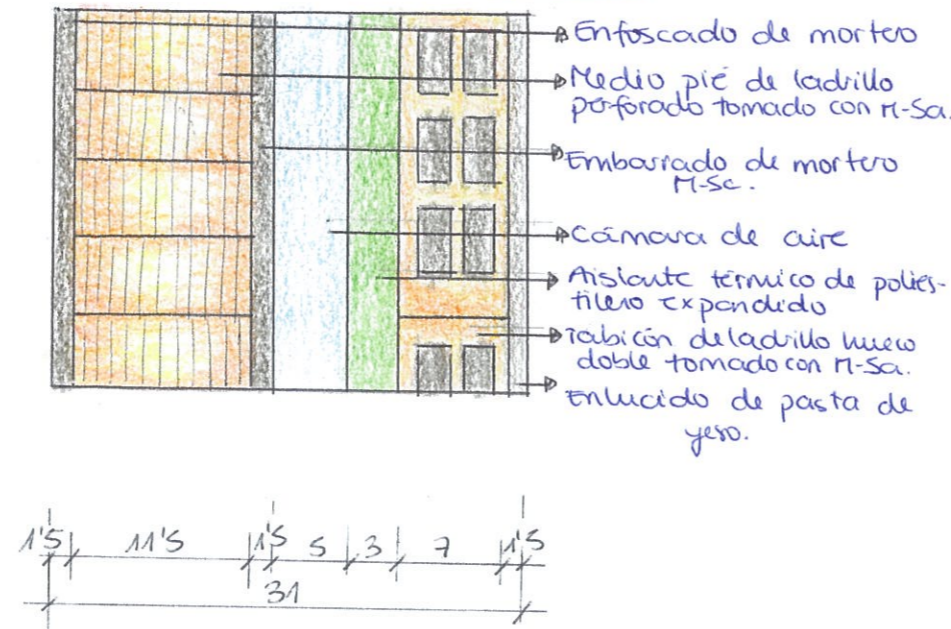 Enfoscado de mortero
Medio pié de ladrillo
perforado tomado con M-5a.
Embarrado de mortero
M-5c.
Cámara de aire
Aislante térmico de polies-
tileno expandido
Tabicón de ladrillo hueco
doble tomado con M-5a.
Enlucido de pasta de
yeso.
1'5 11'5 1'5 5 3 7 1'5
31